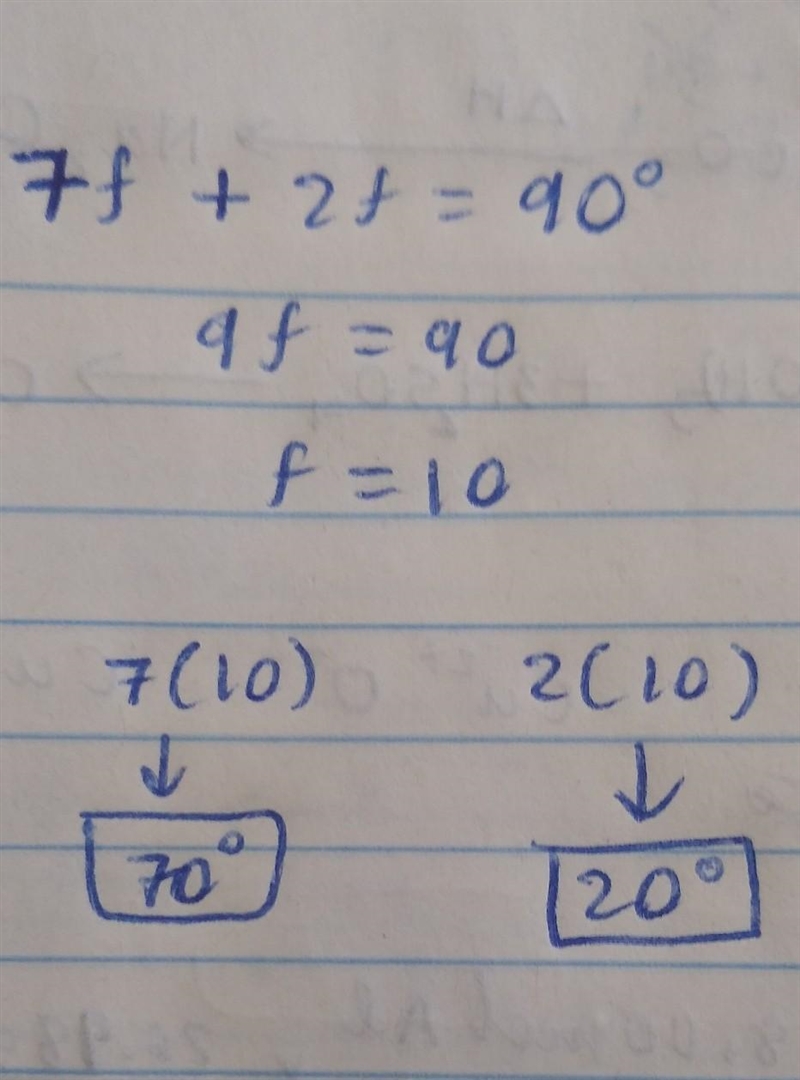 7f + 2f = 90°
9f = 90
f = 10
7(10) 2(10)
↓ ↓
70° 20°